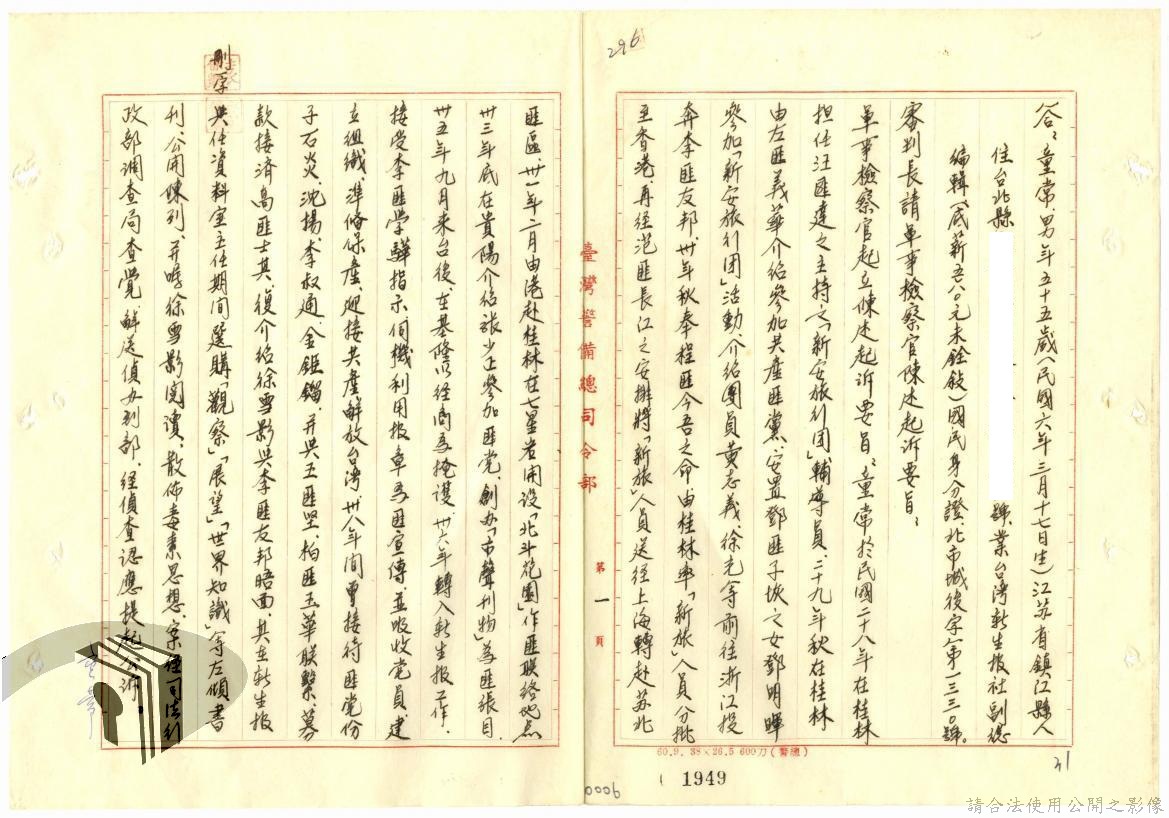 296
答：童常男年五十五歲（民國六年三月十七日生）江苏省鎮江縣人
住台北縣 號業台湾新生报社副總
編輯（底薪五八〇元未銓敍）國民身分證北市城後字第一三三〇號。
審判長請軍事檢察官陳述起訴要旨：
軍事檢察官起立陳述起訴要旨：童常於民國二十八年在桂林
担任汪匪達之主持之「新安旅行团」輔導員，二十九年秋在桂林
由左匪義華介绍參加共產匪黨，安置鄧匪子坎之女鄧明暉
參加「新安旅行团」活動，介绍團員黄志義、徐光等前往浙江投
奔李匪友邦，卅年秋奉程匪今吾之命由桂林率「新旅」人員分批
至香港，再经范匪長江之安排將「新旅」人員送经上海轉赴苏北
臺灣警備總司令部
第一頁
60.9. 38×26.5 600刀（警總）
1949
31
0006
匪區，卅一年二月由港赴桂林在七星岩開設「北斗花園」作匪联络地点
卅三年底在貴陽介绍張少上參加匪党，創办「市聲刊物」為匪張目，
卅五年九月来台後，在基隆以经商為掩護，卅六年轉入新生报工作，
接受李匪學驊指示，伺機利用报章為匪宣傳，並吸收党員建
立組織，準俻保產，迎接共產解放台灣，卅八年间曾接待匪党份
子石炎、沈揚、李叔通、金鉅鎦，并與王匪堅、柏匪玉華联繫，募
款接濟高匪士其，復介绍徐雪影與李匪友邦晤面，其在新生报
刪字 與任資料室主任期间選購「觀察」「展望」「世界知識」等左傾書
刊，公開陳列，并嗾徐雪影閱讀，散佈毒素思想，案经司法行
政部調查局查覺，解送偵办到部，经偵查認應提起公訴。
童常
請合法使用公開之影像